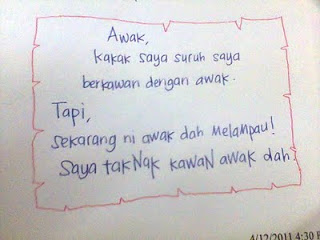 Awak,
kakak saya suruh saya
berkawan dengan awak.
Tapi,
sekarang ni awak dah Melampau!
Saya takNak kawaN awak dah
4/12/2011 4:30